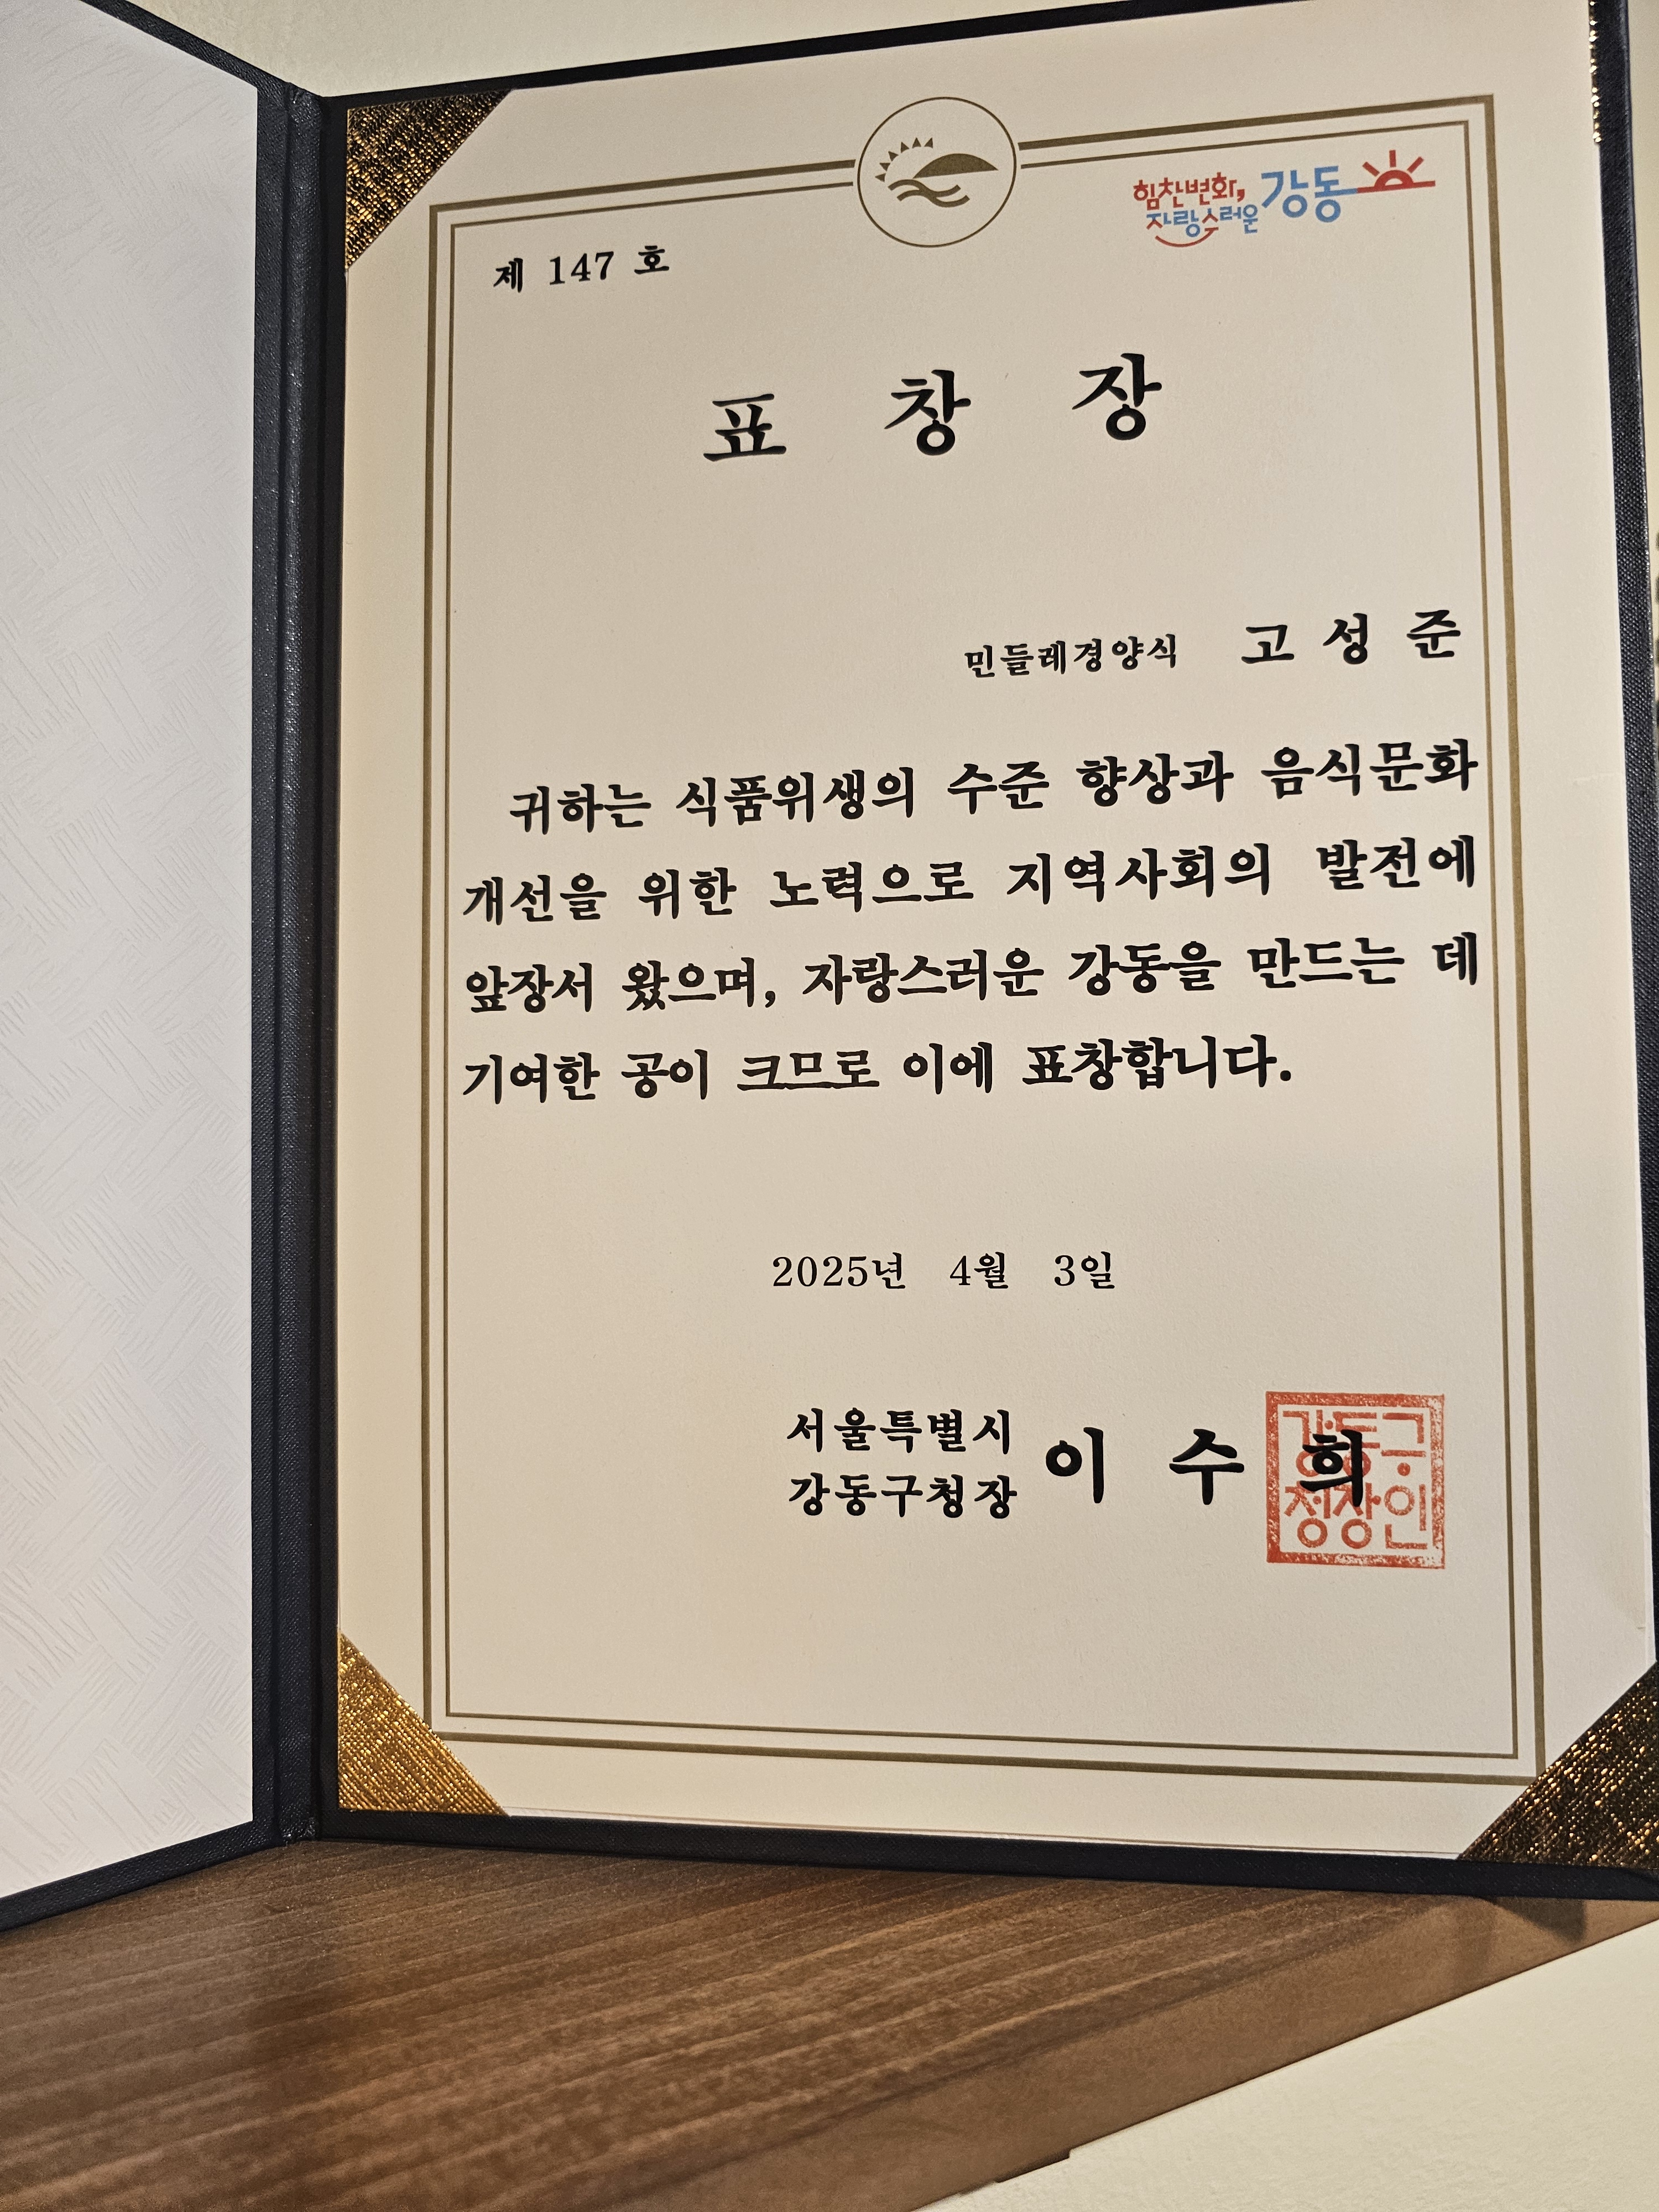 힘찬변화,
자랑스러운 강동
제 147 호
표 창 장
민들레경양식 고 성 준
귀하는 식품위생의 수준 향상과 음식문화
개선을 위한 노력으로 지역사회의 발전에
앞장서 왔으며, 자랑스러운 강동을 만드는 데
기여한 공이 크므로 이에 표창합니다.
2025년 4월 3일
서울특별시
강동구청장 이 수 희
강동구
청장인